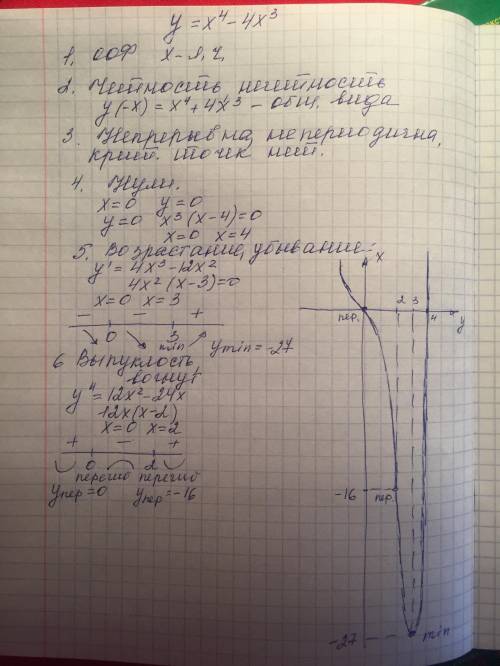 y = x⁴ - 4x³
1, ООФ x - л, ч,
2. Чётность нечётность
y(-x) = x⁴ + 4x³ - общ, вида
3. Непрерывна, непериодична,
крит. точек нет.
4. Нули.
x=0 y=0
y=0 x³(x-4)=0
x=0 x=4
5. Возрастание, убывание:
y' = 4x³ - 12x²
4x²(x-3)=0
x=0 x=3
- - +
0 3
min y min = -27
6 Выпуклость
вогнут
y" = 12x² - 24x
12x(x-2)
x=0 x=2
+ - +
0 2
перегиб перегиб
y пер = 0 y пер = -16
x
2 3
пер. 4 y
-16 пер.
-27 min